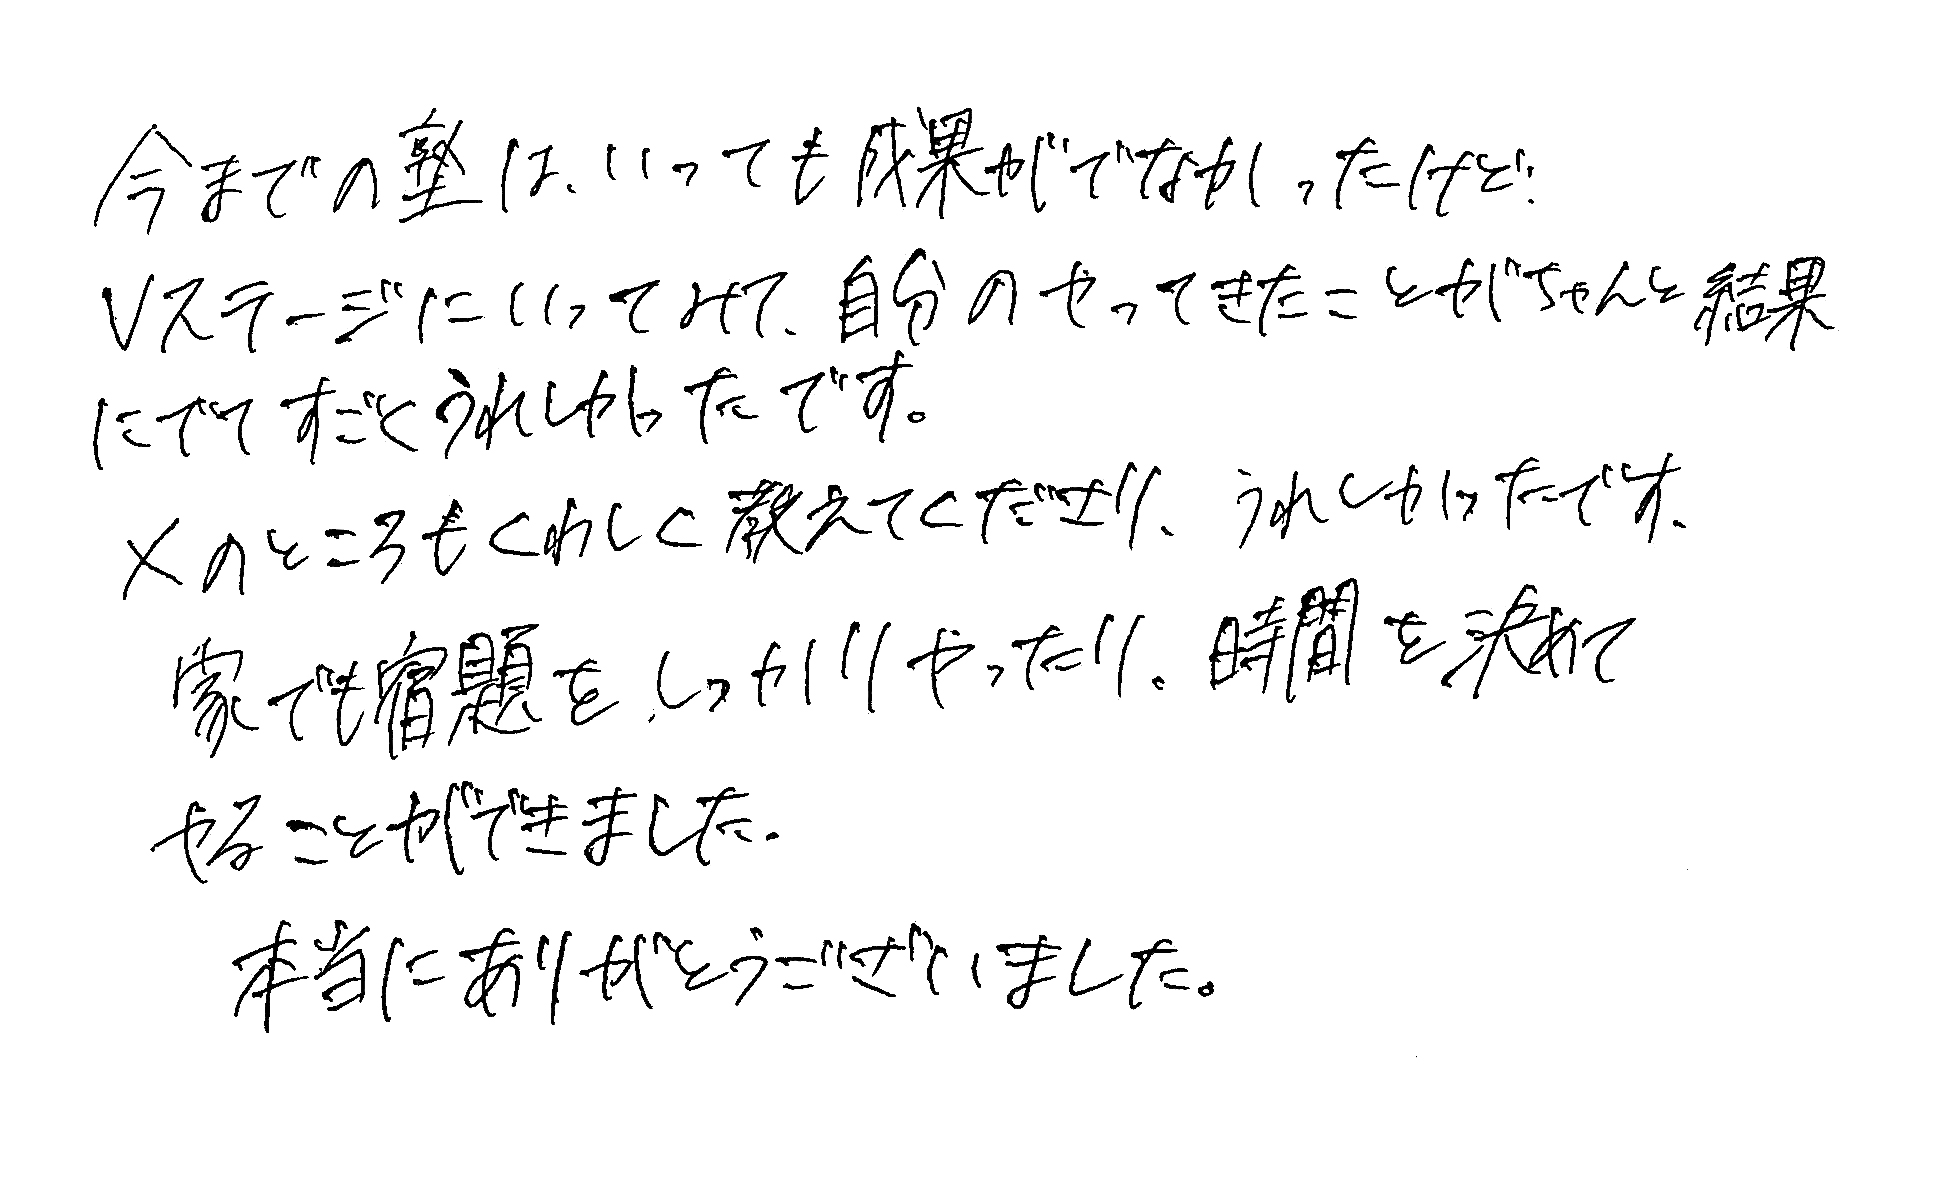 今までの塾は、いっても成果がでなかったけど、
Vステージにいってみて、自分のやってきたことがちゃんと結果
にでてすごくうれしかったです。
×のところもくわしく教えてくださり、うれしかったです。
家でも宿題をしっかりやったり、時間を決めて
やることができました。
本当にありがとうございました。